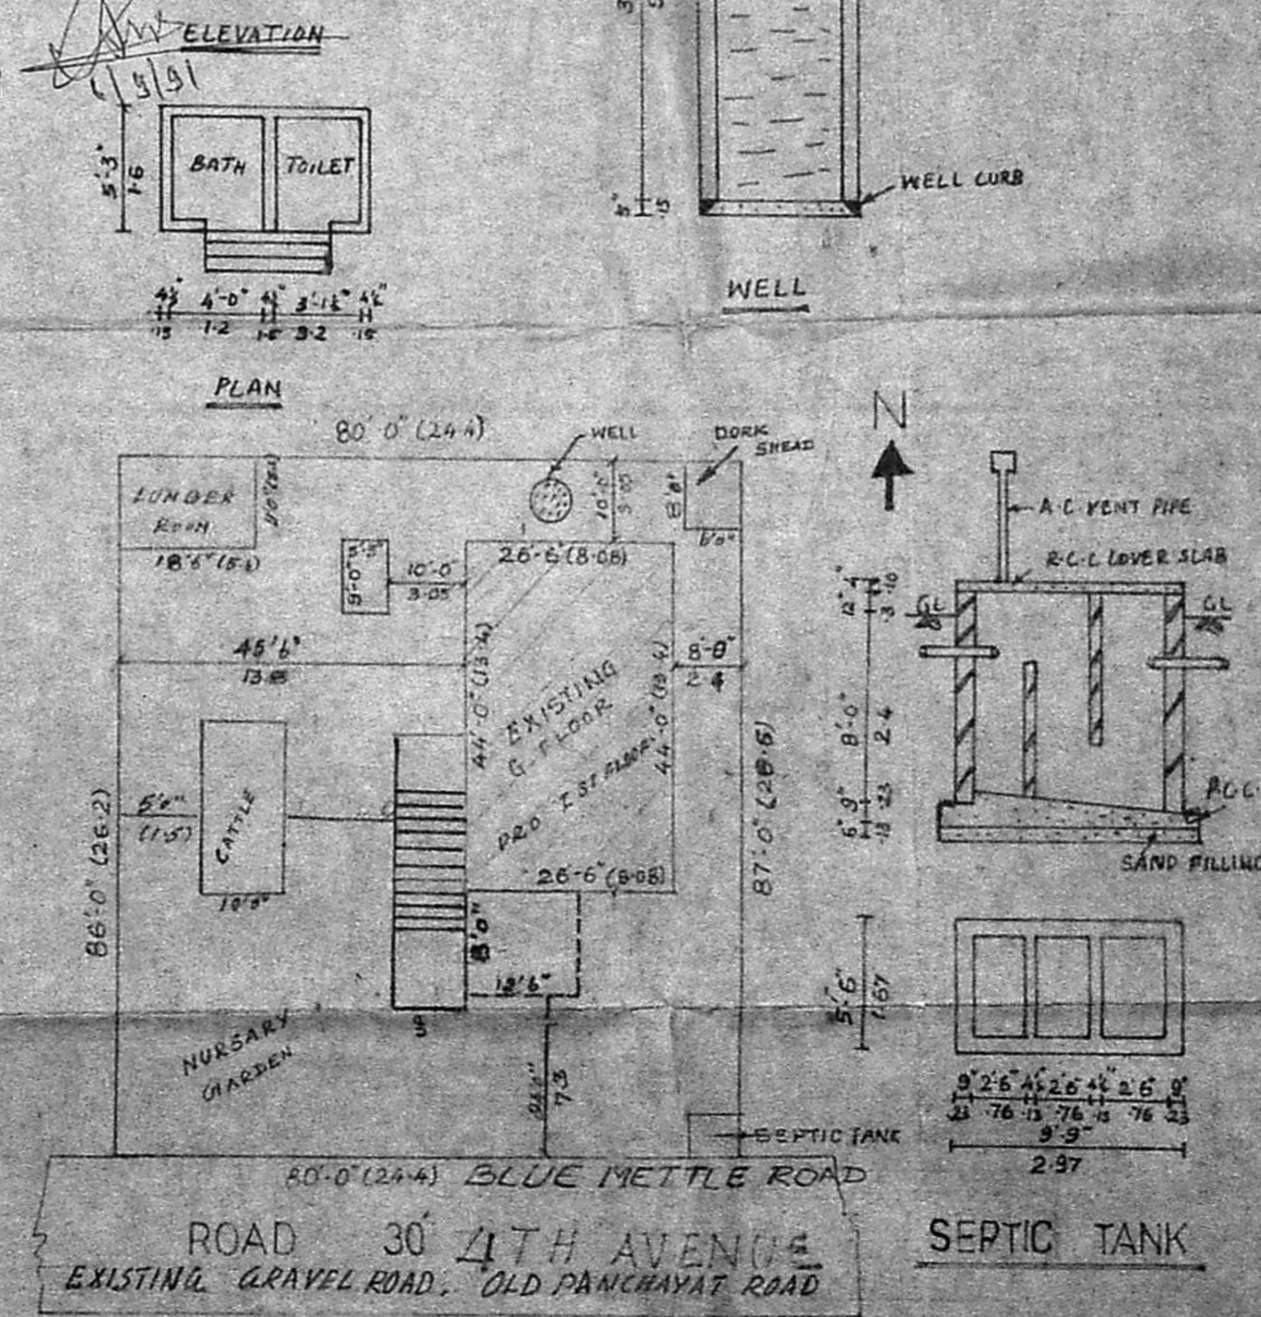 ELEVATION
5'-3"
1.6
BATH
TOILET
4½" 4'-0" 4½" 3'-1½" 4½"
.15 1.2 1.5 3.2 .15
PLAN
WELL CURB
WELL
80' 0" (24.4)
WELL
DORK
SHEAD
N
LUMBER
ROOM
18'6" (5.6)
10'-0"
3.05
8'0"
6'0"
9'-0"
5'-5"
10'-0"
3.05
26'-6" (8.08)
45'6"
44'-0" (13.4)
EXISTING
G. FLOOR
PRO I ST FLOOR
44'-0" (13.4)
8'-0"
2.4
86'-0" (26.2)
5'0"
(1.5)
CATTLE
10'0"
26'-6" (8.08)
87'-0" (26.5)
8'0"
12'6"
UP
NURSARY
GARDEN
7.3
SEPTIC TANK
80'-0" (24.4) BLUE METTLE ROAD
ROAD 30' 4TH AVENUE
EXISTING GRAVEL ROAD. OLD PANCHAYAT ROAD
A.C VENT PIPE
R.C.C LOVER SLAB
4" .10
12" .3
GL
GL
8'-0" 2.4
9" .23
6" .15
SAND FILLING
5'-6"
1.67
9" 2'6" 4½" 2'6" 4½" 2'6" 9"
.23 .76 .13 .76 .13 .76 .23
9'-9"
2.97
SEPTIC TANK